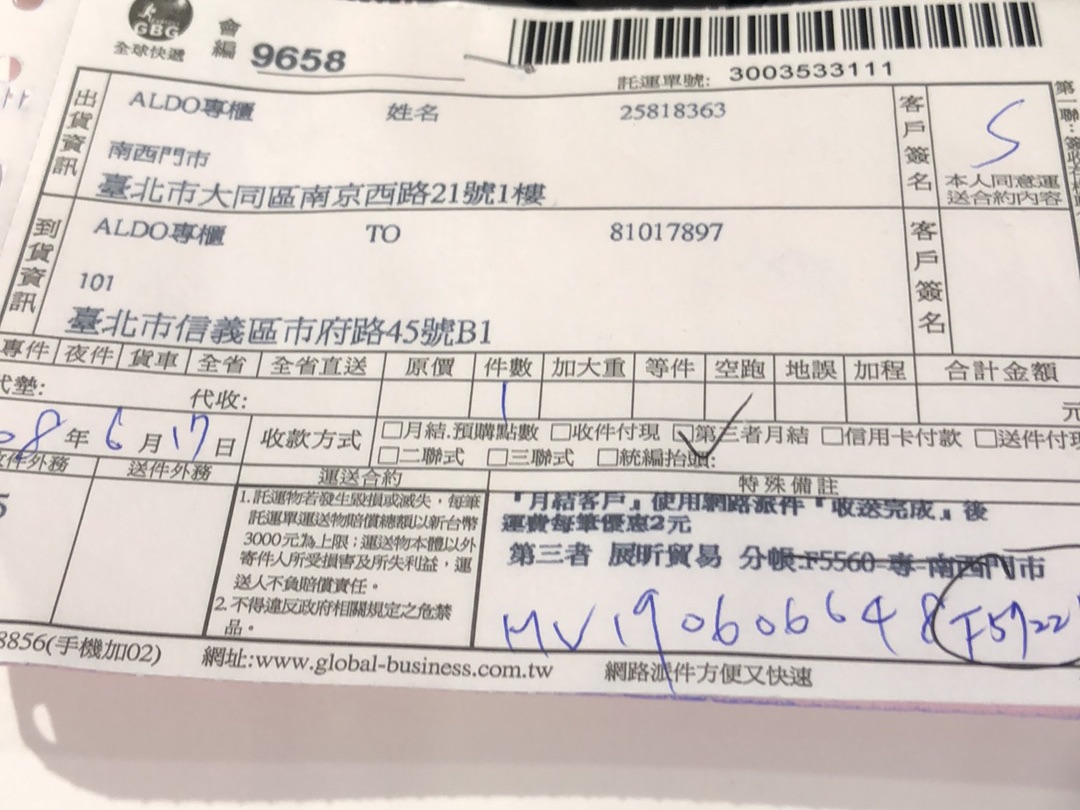 GBG
全球快遞
會編 9658
託運單號: 3003533111
出貨資訊
ALDO專櫃 姓名 25818363
南西門市
臺北市大同區南京西路21號1樓
客戶簽名
本人同意運
送合約內容
到貨資訊
ALDO專櫃 TO 81017897
101
臺北市信義區市府路45號B1
客戶簽名
專件 夜件 貨車 全省 全省直送 原價 件數 加大重 等件 空跑 地誤 加程 合計金額
代墊: 代收: 1 元
08年6月17日 收款方式 □月結.預購點數 □收件付現 □第三者月結 □信用卡付款 □送件付現
□二聯式 □三聯式 □統編抬頭:
收件外務 送件外務 運送合約 特殊備註
1.託運物若發生毀損或滅失,每筆
託運單運送物賠償總額以新台幣
3000元為上限;運送物本體以外
寄件人所受損害及所失利益,運
送人不負賠償責任。
2.不得違反政府相關規定之危禁
品。
『月結客戶』使用網路派件『收送完成』後
運費每筆優惠2元
第三者 展昕貿易 分帳:F5560-專-南西門市
MV190606648 F5722
8856(手機加02) 網址:www.global-business.com.tw 網路派件方便又快速